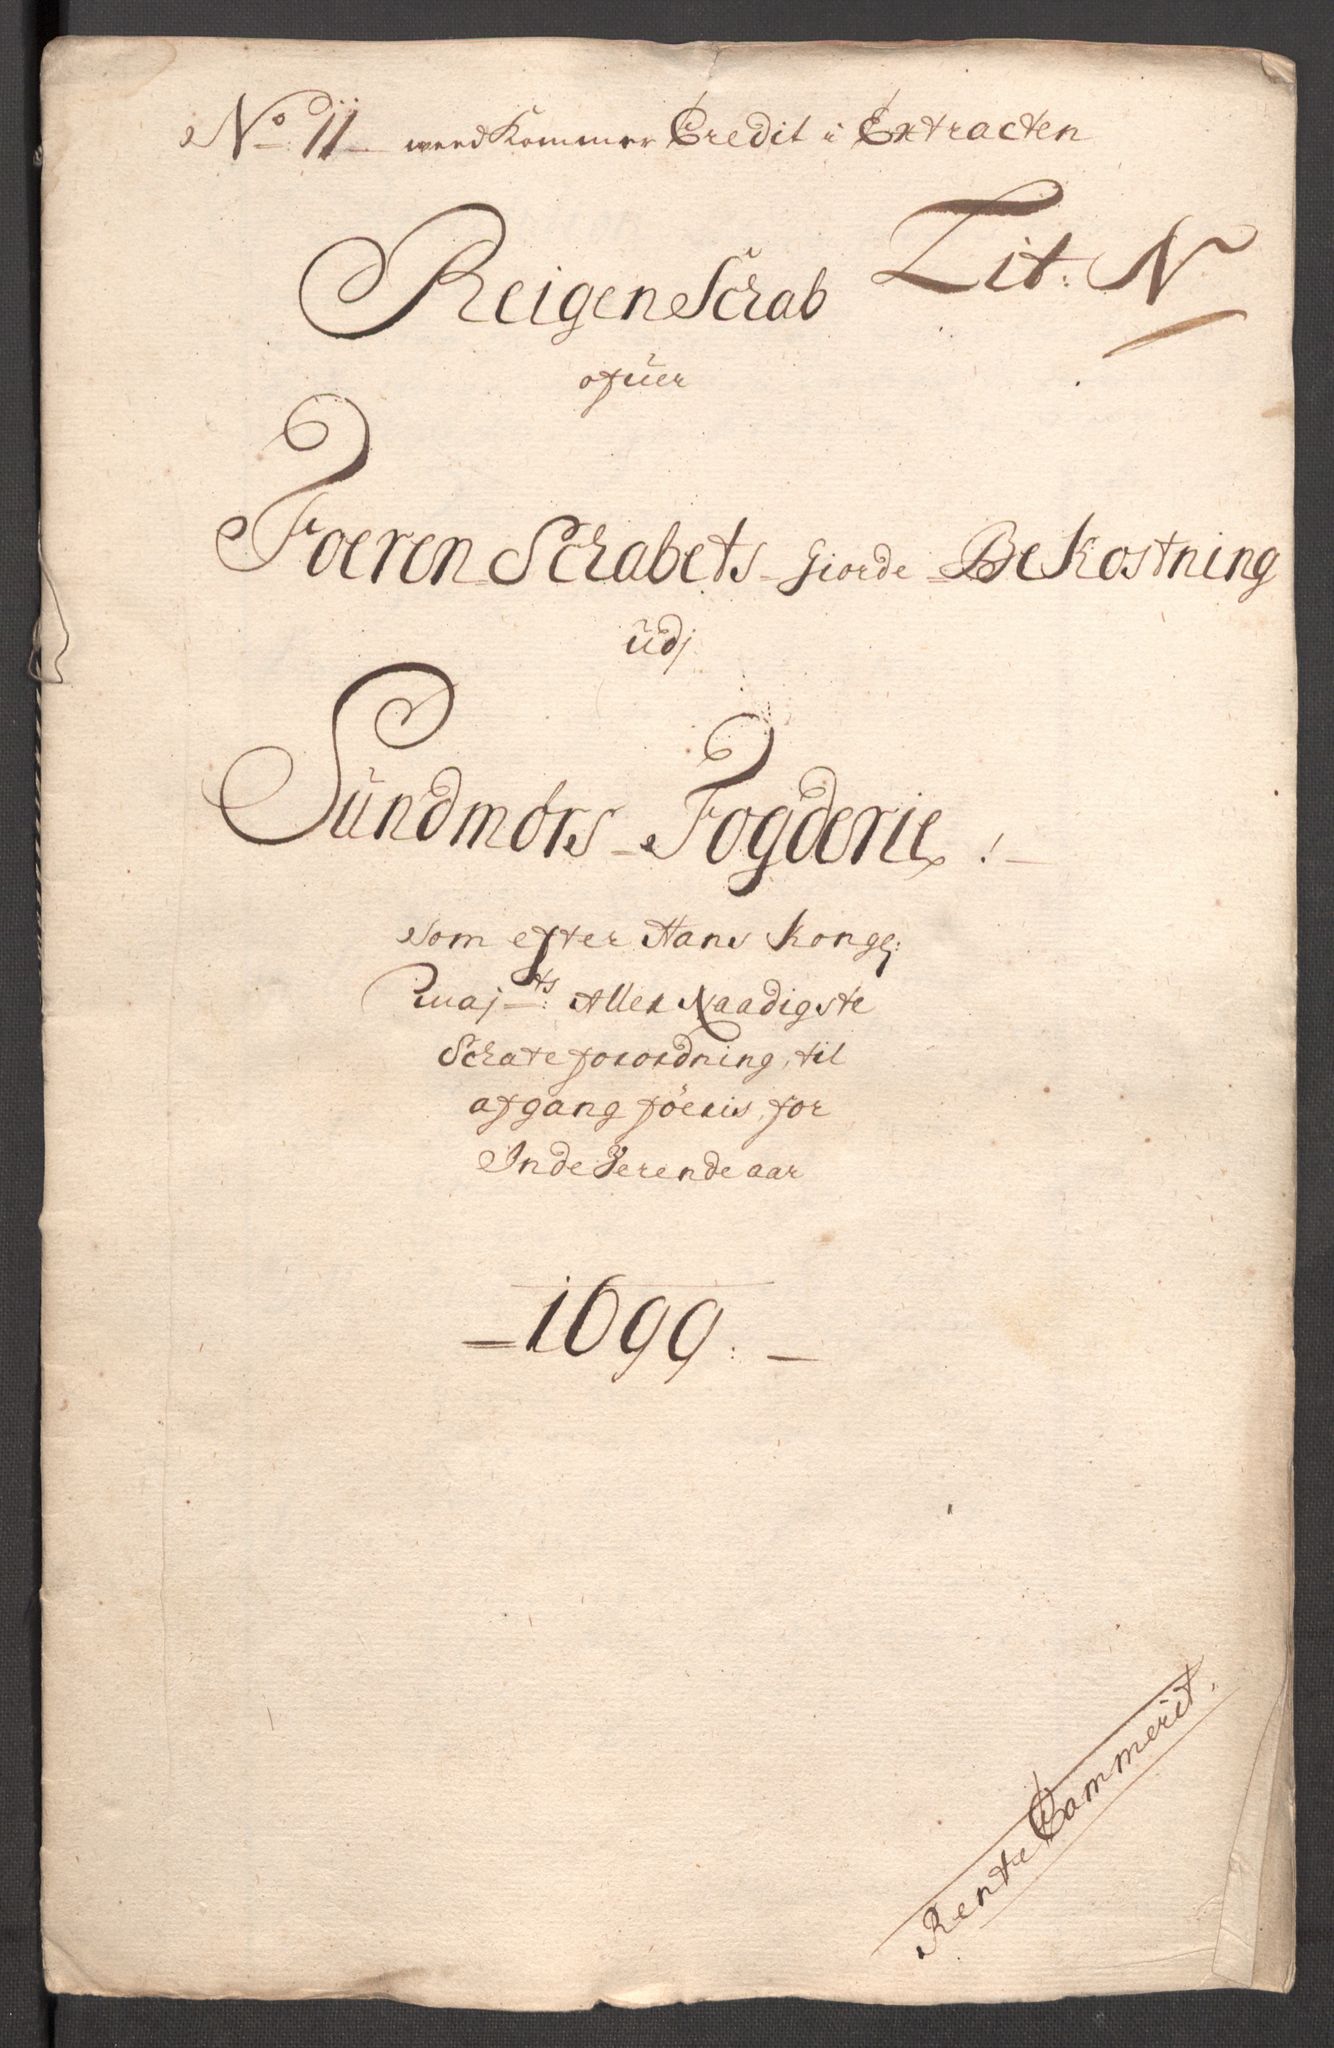 No 11 wedKommer Credit i Extracten
Lit: N
ReigenSchab
ofuer
FoerenSchabets Giorde BeKostning
udj
Sundmörs Fogderie !
som efter Hans Kongl:
Maj:ts AllerNaadigste
Schateforordning, til
afgang föeris, for
IndeVerende aar
1699.
Rente Cammerit.